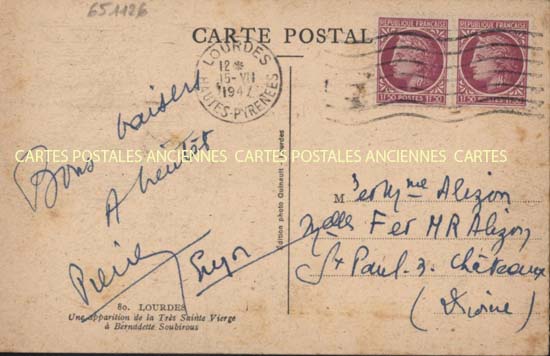 651126
CARTE POSTALE
LOURDES
12 *
15-VII
1947
HAUTES-PYRENEES
REPUBLIQUE FRANÇAISE
1F50 POSTES 1F50
REPUBLIQUE FRANÇAISE
1F50 POSTES 1F50
Bons baisers
A bientôt
Pierre
CARTES POSTALES ANCIENNES CARTES POSTALES ANCIENNES CARTES
Edition photo Lourdes
M
et Mme Alizon
Melles F et MR Alizon
St Paul. 3. Châteaux
(Drôme)
80. LOURDES
Une apparition de la Très Sainte Vierge
à Bernadette Soubirous